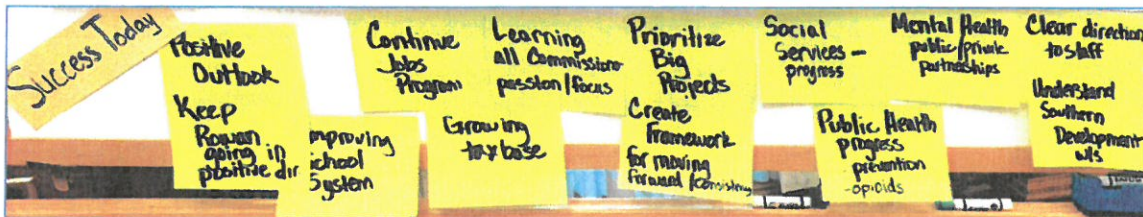 Success Today
Positive
Outlook
Keep
Rowan
going in
positive dir
Improving
School
System
Continue
Jobs
Program
Growing
tax base
Learning
all Commissioner
passion/focus
Prioritize
Big
Projects
Create
Framework
for moving
forward/consistency
Social
Services-
progress
Public Health
progress
prevention
-opioids
Mental Health
public/private
partnerships
Clear direction
to staff
Understand
Southern
Development
w/s